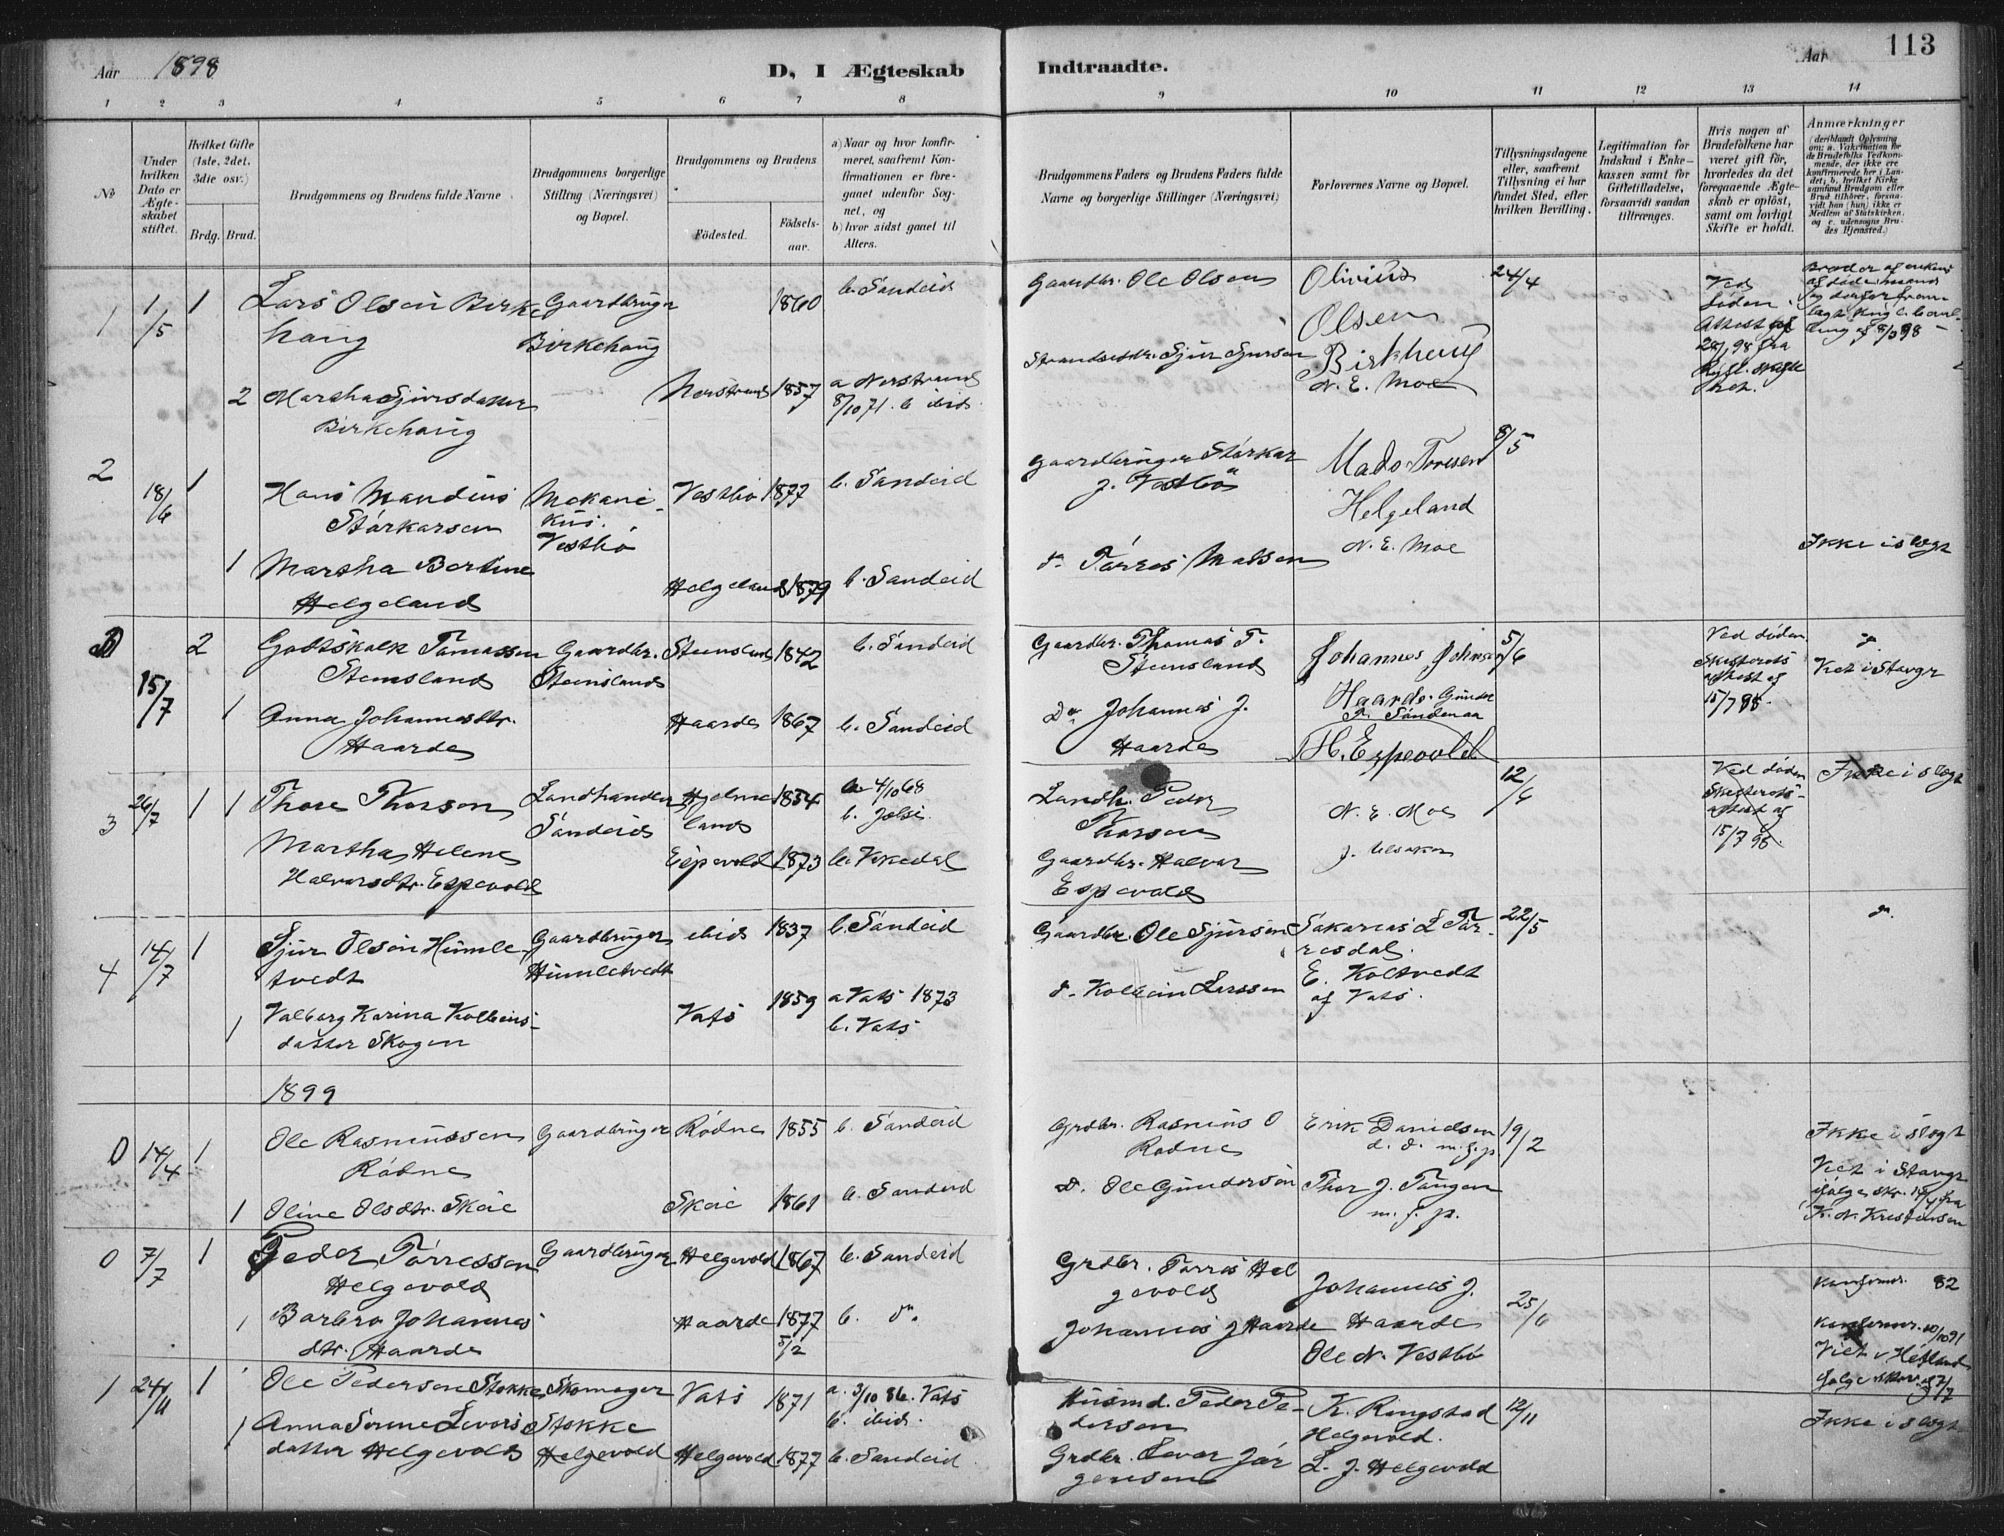 Aar 1898
D, I Ægteskab Indtraadte.
Aar 113
1 2 3 4 5 6 7 8 9 10 11 12 13 14
№
Under hvilken Dato er Ægteskabet stiftet.
Hvilket Gifte (1ste, 2det, 3die osv.)
Brdg. Brud.
Brudgommens og Brudens fulde Navne
Brudgommens borgerlige Stilling (Næringsvei) og Bopæl.
Brudgommens og Brudens
Fødested.
Fødselsaar.
a) Naar og hvor konfirmeret, saafremt Konfirmationen er foregaaet udenfor Sognet, og
b) hvor sidst gaaet til Alters.
Brudgommens Faders og Brudens Faders fulde Navne og borgerlige Stillinger (Næringsvei)
Forlovernes Navne og Bopæl.
Tillysningsdagene eller, saafremt Tillysning ei har fundet Sted, efter hvilken Bevilling.
Legitimation for Indskud i Enkekassen samt for Giftetilladelse, forsaavidt saadan tiltrænges.
Hvis nogen af Brudefolkene har været gift før, hvorledes da det foregaaende Ægteskab er opløst, samt om lovligt Skifte er holdt.
Anmærkninger (deriblandt Oplysning om: a. Vakcination for de Brudefolks Vedkommende, der ikke ere konfirmerede her i Landet; b. hvilket Kirkesamfund Brudgom eller Brud tilhører, forsaavidt han (hun) ikke er Medlem af Statskirken, og c. udensogns Brudes Hjemsted.)
1 1/5 1 Lars Olsen Birkehaug Gaardbruger Birkehaug 1860 b. Sandeid
Gaardbr. Ole Olsen Olivius Olsen Birkhaug 24/4
Ved døden.
2 Martha Sjursdatter Birkehaug Nerstrand 1857 a Nerstrand 8/10 71. b ibid.
Strandsidder Sjur Sjursen N. E. Moe
2 18/6 1 Hans Mandius Størkarsen Mekanikus. Vestbø Vestbø 1877 b. Sandeid
Gaardbruger Størkar J. Vestbø Mads Tørresen Helgeland 8/5
1 Martha Bertine Helgeland Helgeland 1879 b. Sandeid
Tørres Matsen N. E. Moe Ikke i slegt
15/7 2 Godtskalk Tamassen Stensland Gaardbr. Steinsland Stensland 1842 b. Sandeid
Gaardbr. Thomas T. Stensland Johannes Johnsen Haarde. 5/6
Ved døden. Skifterets attest af 15/7 98.
Viet i Stavgr
1 Anna Johannesdtr. Haarde Haarde 1867 b. Sandeid
Do Johannes J. Haarde H. Espevold
3 26/7 1 1 Thore Thorsen Landhandler Sandeid Hjelmeland 1854 a 4/10 68 b. Jelse.
Landh. Peder Thorsen N. E. Moe 12/6
Ved døden Skifterets attest af 15/7 98.
Ikke i slegt
Martha Helene Halvorsdtr. Espevold Espevold 1873 b. Vikedal
Gaardbr. Halvor Espevold
4 14/7 1 Sjur Olsen Humletvedt Gaardbruger Humletvedt ibid 1837 b. Sandeid
Gaardbr. Ole Sjursen Sakarias L Tørresdal. 22/5
1 Valborg Karina Kolbeinsdatter Skogen Vats 1859 a Vats 1873 b. Vats
Kolbein Larssen E. Koltvedt af Vats.
1899
0 14/4 1 Ole Rasmussen Rødne Gaardbruger Rødne 1855 b. Sandeid
Grdbr. Rasmus O Rødne Erik Danielsen 19/2
Ikke i slegt
1 Oline Olsdtr. Skeie Skeie 1861 b. Sandeid
Ole Gundersen Thor J. Tangen
Viet i Stavgr ifølge skr. 14/4 fra K. N. Kristensen
0 7/7 1 Peder Tørressen Helgevold Gaardbruger Helgevold 1867 b. Sandeid
Grdbr. Tørres Helgevold Johannes J. Haarde 25/6
Konfirmr. 82
1 Barbro Johannesdtr. Haarde Haarde 1877 5/2 b. do.
Johannes J Haarde Ole N. Vestbø
Konfirmr. 10/10 91
Viet i Hetland
1 24/11 1 Ole Pedersen Stokke Skomager Stokke Vats 1871 a. 3/10 86. Vats b. ibid.
Husmd. Peder Pedersen K. Ringstad Helgevold. 12/11
Ikke i slegt
1 Anna Serine Sevorsdatter Helgevold Helgevold Helgevold 1877 b. Sandeid
Grdbr. Sevor Jørgensen L. J. Helgevold